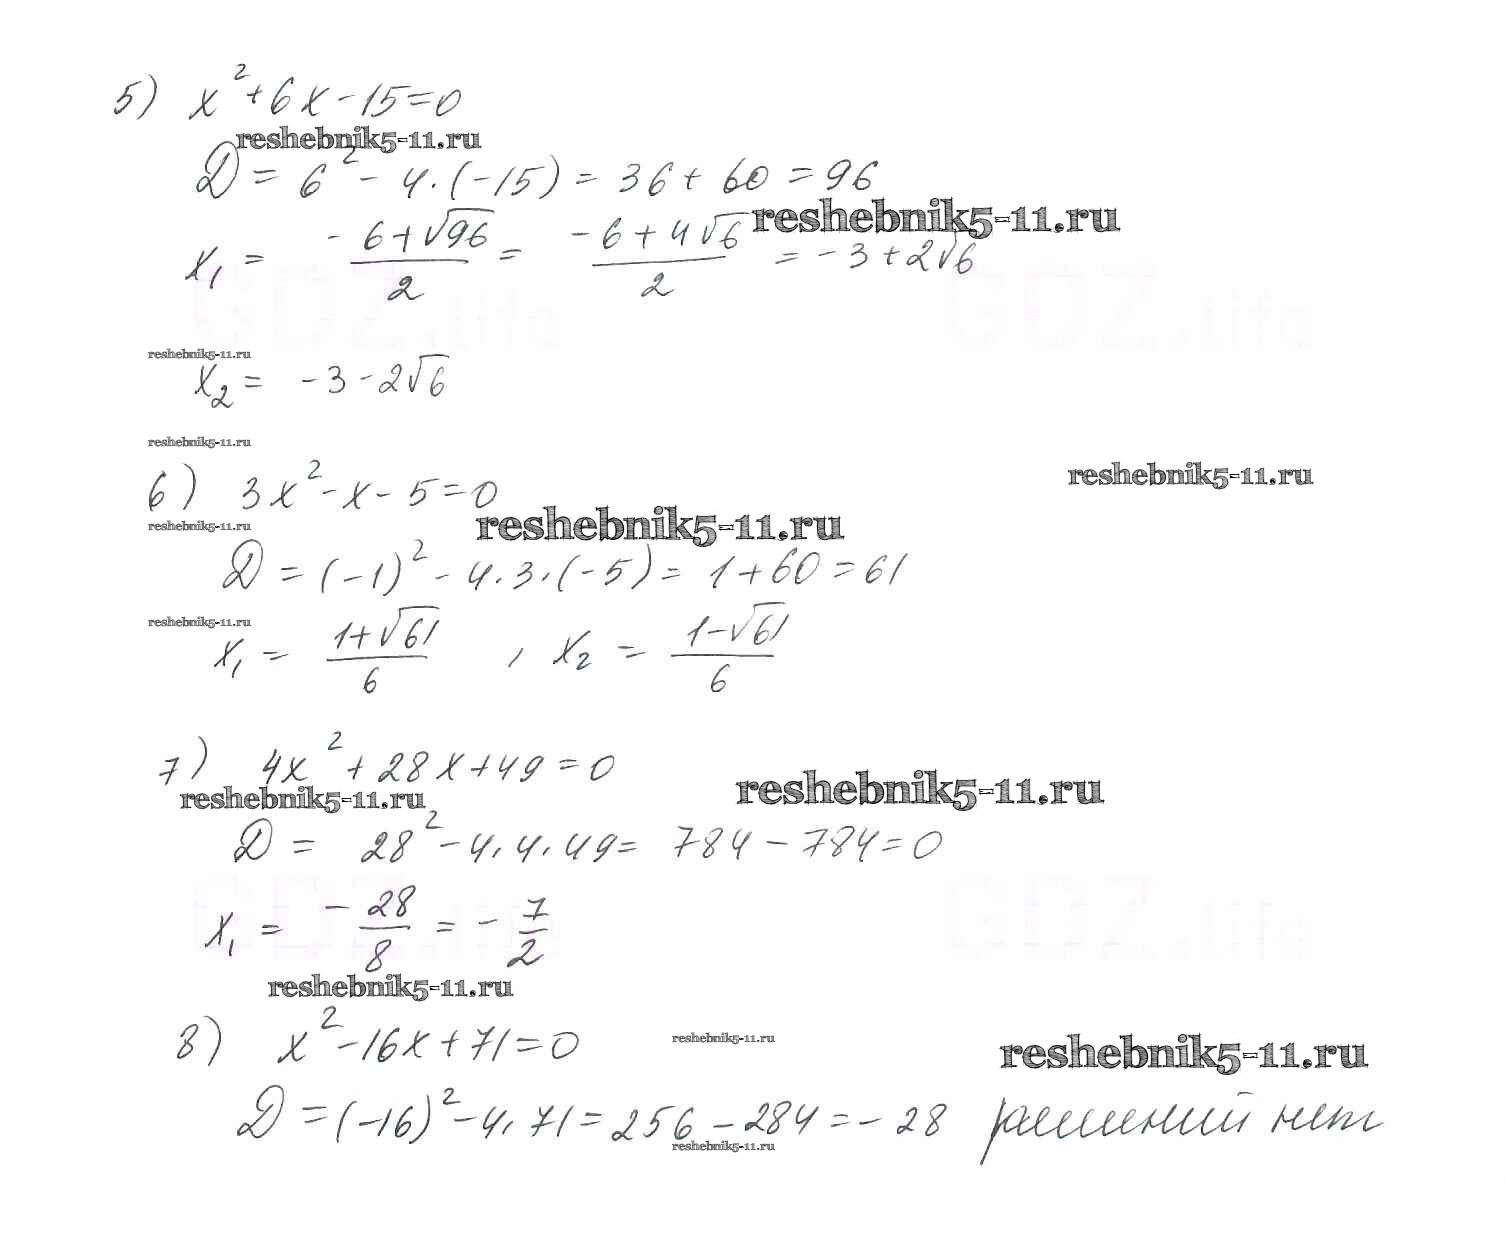 5) x² + 6x - 15 = 0
reshebnik5-11.ru
D = 6² - 4·(-15) = 36 + 60 = 96
reshebnik5-11.ru
x₁ = -6+√96/2 = -6+4√6/2 = -3+2√6
GDZ.life GDZ.life
reshebnik5-11.ru
x₂ = -3-2√6
reshebnik5-11.ru
reshebnik5-11.ru
6) 3x² - x - 5 = 0
reshebnik5-11.ru
reshebnik5-11.ru
D = (-1)² - 4·3·(-5) = 1+60 = 61
reshebnik5-11.ru
x₁ = 1+√61/6 , x₂ = 1-√61/6
7) 4x² + 28x + 49 = 0
reshebnik5-11.ru
reshebnik5-11.ru
D = 28² - 4·4·49 = 784 - 784 = 0
x₁ = -28/8 = -7/2
GDZ.life GDZ.life
reshebnik5-11.ru
8) x² - 16x + 71 = 0
reshebnik5-11.ru
reshebnik5-11.ru
D = (-16)² - 4·71 = 256 - 284 = -28 решений нет
reshebnik5-11.ru